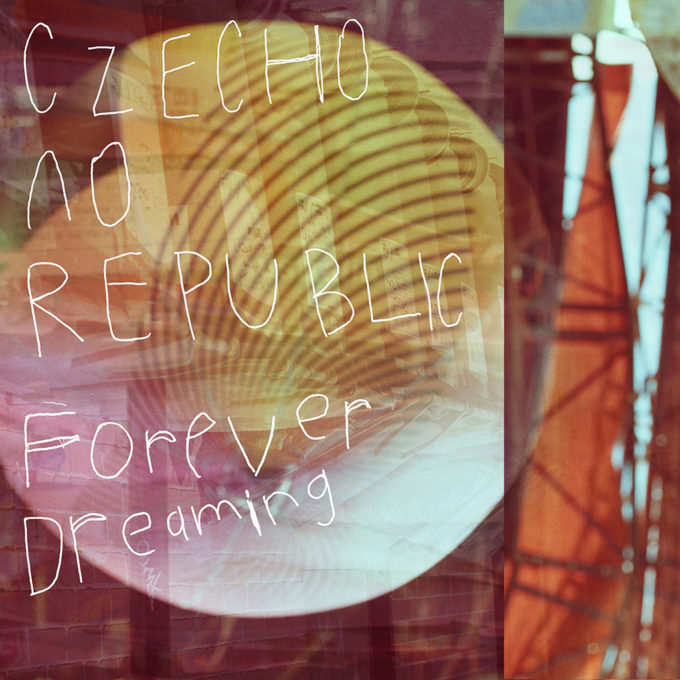 CZECHO
NO
REPUBLIC
Forever
Dreaming